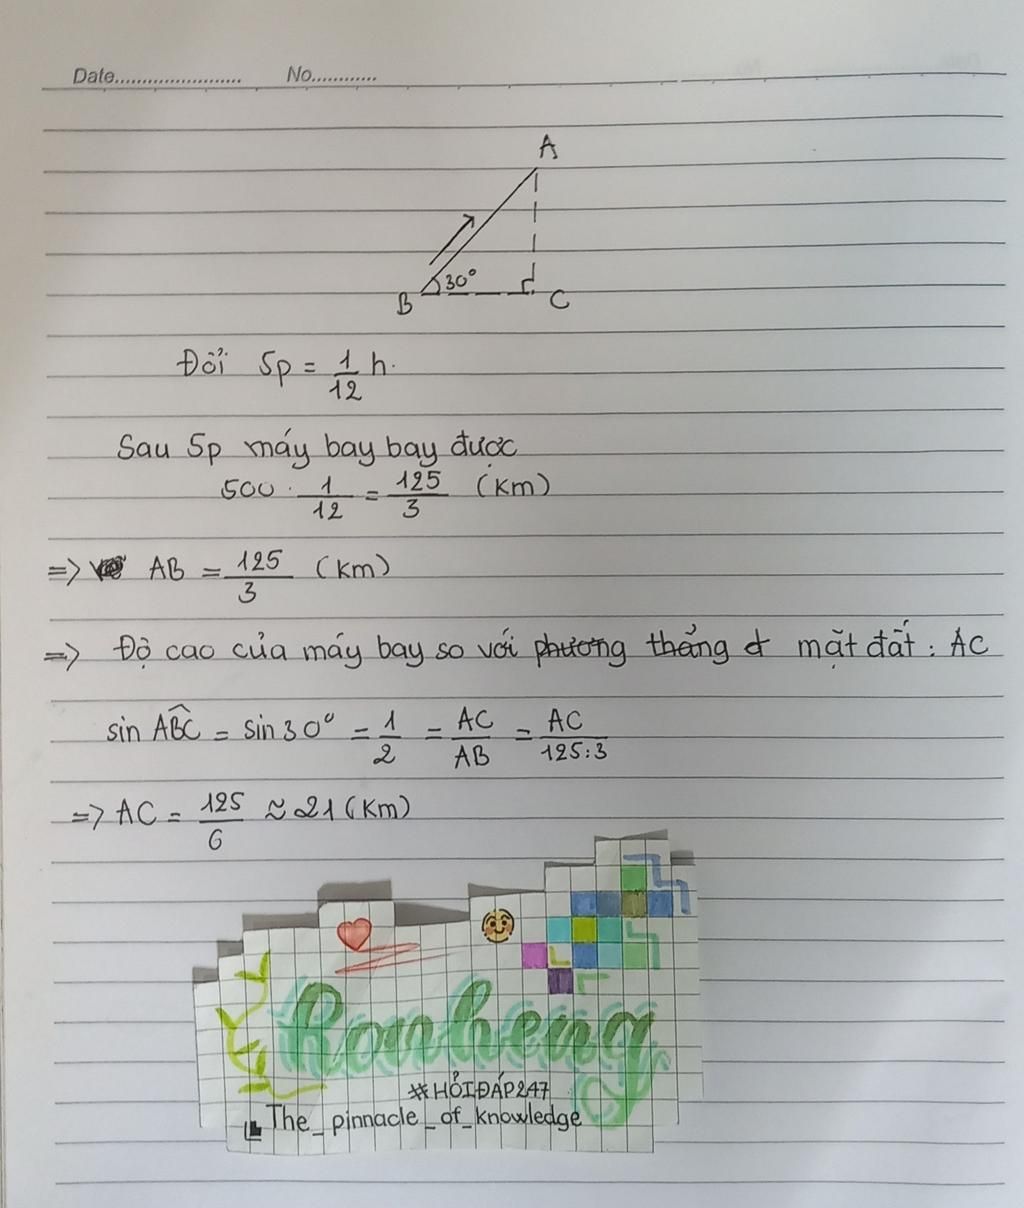 Date...................... No............
A
30°
B C
Đổi 5p = 1/12 h.
Sau 5p máy bay bay được
500 . 1/12 = 125/3 (km)
=> AB = 125/3 (km)
=> Độ cao của máy bay so với phương thẳng đ mặt đất : AC
sin ABC = sin 30° = 1/2 = AC/AB = AC/125:3
=> AC = 125/6 ≈ 21 (km)
Ronheng
#HỎIĐÁP247
The_pinnacle_of_knowledge